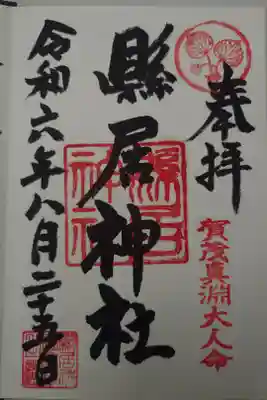 奉拝
賀茂真淵大人命
縣居神社
令和六年八月二十五日